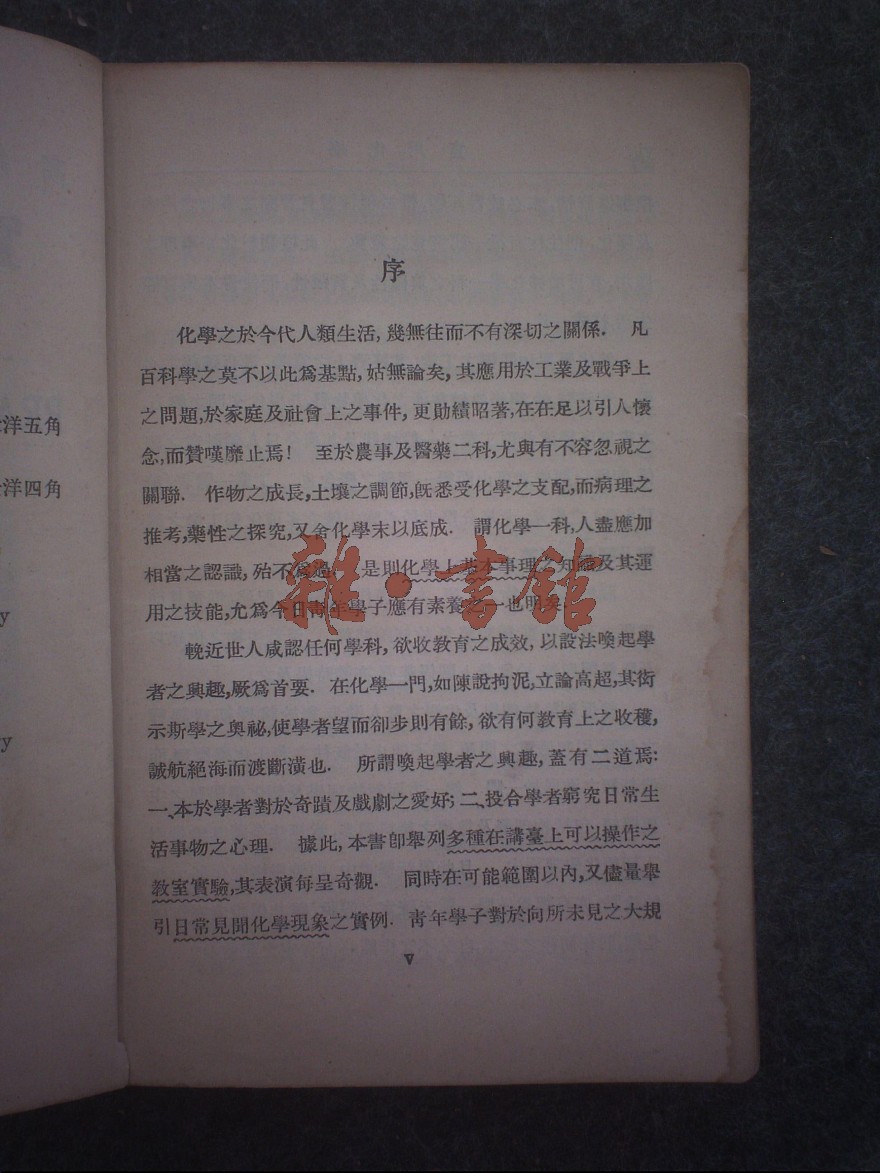 序
化學之於今代人類生活, 幾無往而不有深切之關係. 凡
百科學之莫不以此爲基點, 姑無論矣, 其應用於工業及戰爭上
之問題, 於家庭及社會上之事件, 更勛績昭著, 在在足以引人懷
念, 而贊嘆靡止焉! 至於農事及醫藥二科, 尤與有不容忽視之
關聯. 作物之成長, 土壤之調節, 旣悉受化學之支配, 而病理之
推考, 藥性之探究, 又舍化學末以底成. 謂化學一科, 人盡應加
相當之認識, 殆不爲過. 是則化學上基本事理之知識及其運
用之技能, 尤爲今日靑年學子應有素養之一也明矣.
輓近世人咸認任何學科, 欲收教育之成效, 以設法喚起學
者之興趣, 厥爲首要. 在化學一門, 如陳說拘泥, 立論高超, 其衒
示斯學之奧祕, 使學者望而卻步則有餘, 欲有何教育上之收穫,
誠航絕海而渡斷潢也. 所謂喚起學者之興趣, 蓋有二道焉:
一、本於學者對於奇蹟及戲劇之愛好; 二、投合學者窮究日常生
活事物之心理. 據此, 本書卽舉列多種在講臺上可以操作之
教室實驗, 其表演每呈奇觀. 同時在可能範圍以內, 又儘量舉
引日常見聞化學現象之實例. 靑年學子對於向所未見之大規
V
洋五角
洋四角
y
ry
雜·書館